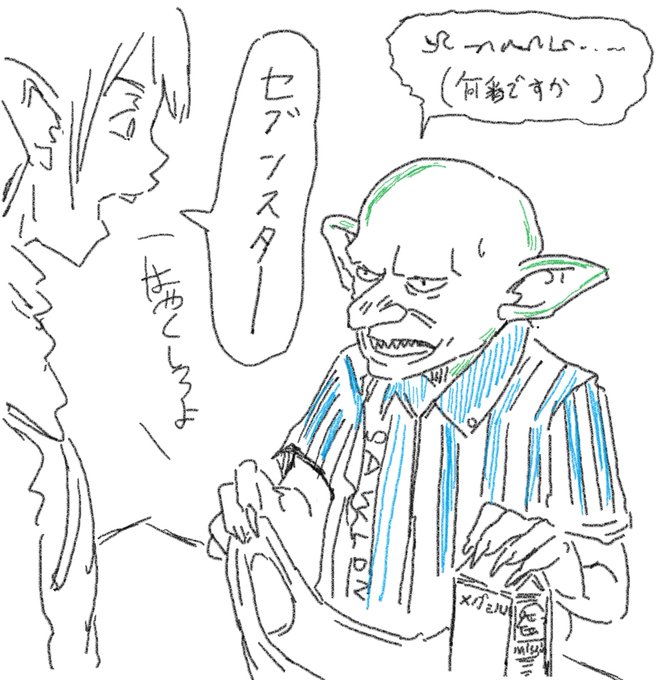 (何番ですか)
セブンスター
はやくしろよ
GAWLDN